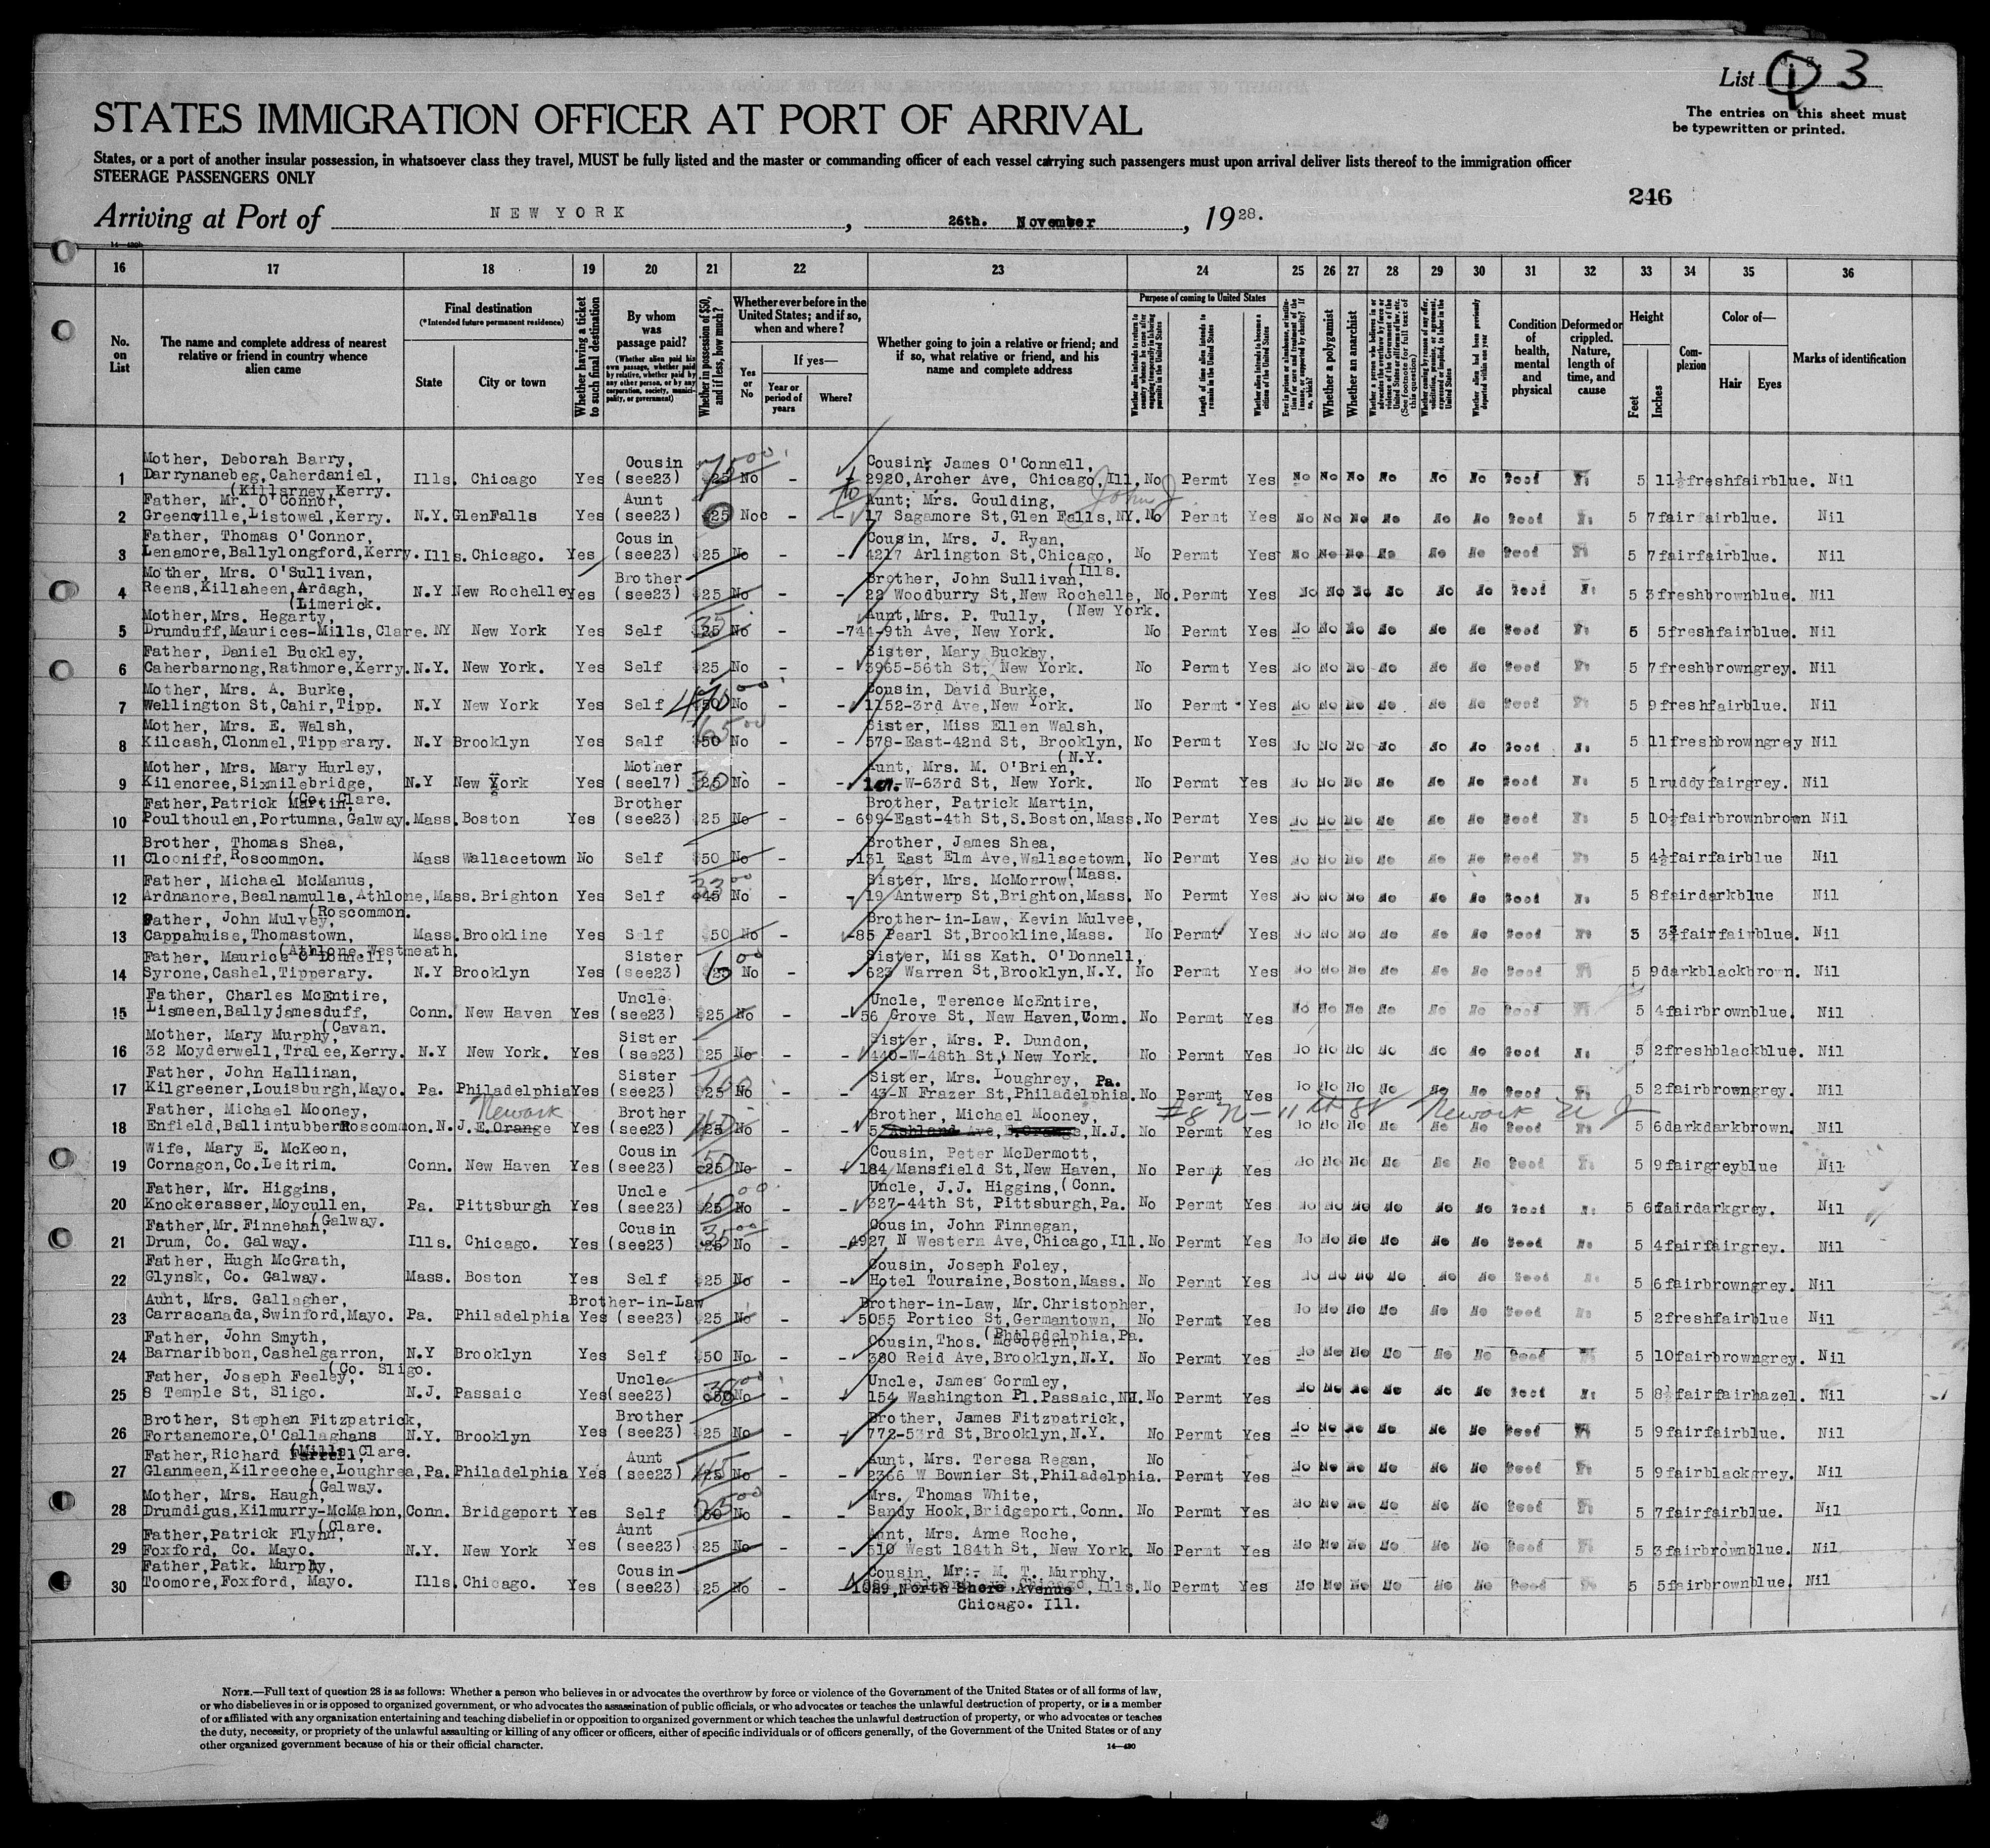 List 1 3
The entries on this sheet must
be typewritten or printed.
STATES IMMIGRATION OFFICER AT PORT OF ARRIVAL
States, or a port of another insular possession, in whatsoever class they travel, MUST be fully listed and the master or commanding officer of each vessel carrying such passengers must upon arrival deliver lists thereof to the immigration officer
STEERAGE PASSENGERS ONLY
246
Arriving at Port of NEW YORK, 26th. November, 1928.
16 17 18 19 20 21 22 23 24 25 26 27 28 29 30 31 32 33 34 35 36
No. on List
The name and complete address of nearest relative or friend in country whence alien came
Final destination
(*Intended future permanent residence)
State
City or town
Whether having a ticket to such final destination
By whom was passage paid?
(Whether alien paid his own passage, whether paid by relative, whether paid by any other person, or by any corporation, society, municipality, or government)
Whether in possession of $50, and if less, how much?
Whether ever before in the United States; and if so, when and where?
Yes or No
If yes—
Year or period of years
Where?
Whether going to join a relative or friend; and if so, what relative or friend, and his name and complete address
Purpose of coming to United States
Length of time alien intends to remain in the United States
Whether alien intends to become a citizen of the United States
Whether a polygamist
Whether an anarchist
Condition of health, mental and physical
Deformed or crippled. Nature, length of time, and cause
Height
Feet
Inches
Complexion
Color of—
Hair
Eyes
Marks of identification
Mother, Deborah Barry, Cousin Cousin; James O'Connell,
1 Darrynanebeg, Caherdaniel, Ills. Chicago Yes (see23) $25 No - - 2920, Archer Ave, Chicago, Ill. No Permt Yes No No No No No No Good No 5 11½ fresh fair blue. Nil
(Killarney, Kerry.
Father, Mr. O'Connor, Aunt Aunt; Mrs. Goulding, John J
2 Greenville, Listowel, Kerry. N.Y. GlenFalls Yes (see23) $25 No - - 17 Sagamore St, Glen Falls, NY. No Permt Yes No No No No No No Good No 5 7 fair fair blue. Nil
Father, Thomas O'Connor, Cousin Cousin, Mrs. J. Ryan,
3 Lenamore, Ballylongford, Kerry. Ills. Chicago. Yes (see23) $25 No - - 4217 Arlington St, Chicago, No Permt Yes No No No No No No Good No 5 7 fair fair blue. Nil
(Ills.
Mother, Mrs. O'Sullivan, Brother Brother, John Sullivan,
4 Reens, Killaheen, Ardagh, N.Y New Rochelle Yes (see23) $25 No - - 22 Woodburry St, New Rochelle, No. Permt Yes No No No No No No Good No 5 3 fresh brown blue. Nil
(Limerick. (New York.
Mother, Mrs. Hegarty, 35 Aunt, Mrs. P. Tully,
5 Drumduff, Maurices-Mills, Clare. NY New York Yes Self $25 No - - 744-9th Ave, New York. No Permt Yes No No No No No No Good No 5 5 fresh fair blue. Nil
Father, Daniel Buckley, Sister, Mary Buckey,
6 Caherbarnong, Rathmore, Kerry. N.Y. New York. Yes Self $25 No - - 3965-56th St, New York. No Permt Yes No No No No No No Good No 5 7 fresh brown grey. Nil
Mother, Mrs. A. Burke, Cousin, David Burke,
7 Wellington St, Cahir, Tipp. N.Y New York Yes Self $50 No - - 1152-3rd Ave, New York. No Permt Yes No No No No No No Good No 5 9 fresh fair blue. Nil
Mother, Mrs. E. Walsh, 65 00 Sister, Miss Ellen Walsh,
8 Kilcash, Clonmel, Tipperary. N.Y Brooklyn Yes Self $50 No - - 578-East-42nd St, Brooklyn, No Permt Yes No No No No No No Good No 5 11 fresh brown grey Nil
(N.Y.
Mother, Mrs. Mary Hurley, Mother Aunt, Mrs. M. O'Brien,
9 Kilencree, Sixmilebridge, N.Y New York Yes (see17) 30 $25 No - - W-63rd St, New York. No Permt Yes No No No No No No Good No 5 1 ruddy fair grey. Nil
(Co. Clare.
Father, Patrick Martin, Brother Brother, Patrick Martin,
10 Poulthoulen, Portumna, Galway. Mass. Boston Yes (see23) $25 No - - 699-East-4th St, S. Boston, Mass. No Permt Yes No No No No No No Good No 5 10½ fair brown brown Nil
Brother, Thomas Shea, Brother, James Shea,
11 Clooniff, Roscommon. Mass Wallacetown No Self $50 No - - 131 East Elm Ave, Wallacetown, No Permt Yes No No No No No No Good No 5 4½ fair fair blue Nil
(Mass.
Father, Michael McManus, 33 00 Sister, Mrs. McMorrow,
12 Ardnanore, Bealnamulla, Athlone, Mass. Brighton Yes Self $45 No - - 19 Antwerp St, Brighton, Mass. No Permt Yes No No No No No No Good No 5 8 fair dark blue Nil
(Roscommon.
Father, John Mulvey, Brother-in-Law, Kevin Mulvee,
13 Cappahuise, Thomastown, Mass. Brookline Yes Self $50 No - - 85 Pearl St, Brookline, Mass. No Permt Yes No No No No No No Good No 5 3½ fair fair blue. Nil
(Athlone, Westmeath.
Father, Maurice O'Donnell, Sister Sister, Miss Kath. O'Donnell,
14 Syrone, Cashel, Tipperary. N.Y Brooklyn Yes (see23) $25 No - - 623 Warren St, Brooklyn, N.Y. No Permt Yes No No No No No No Good No 5 9 dark black brown. Nil
Father, Charles McEntire, Uncle Uncle, Terence McEntire,
15 Lismeen, Ballyjamesduff, Conn. New Haven Yes (see23) $25 No - - 56 Grove St, New Haven, Conn. No Permt Yes No No No No No No Good No 5 4 fair brown blue. Nil
(Cavan.
Mother, Mary Murphy, Sister Sister, Mrs. P. Dundon,
16 32 Moyderwell, Tralee, Kerry. N.Y New York. Yes (see23) $25 No - - 440-W-48th St, New York. No Permt Yes No No No No No No Good No 5 2 fresh black blue. Nil
Father, John Hallinan, Sister 100 Sister, Mrs. Loughrey, Pa.
17 Kilgreener, Louisburgh, Mayo. Pa. Philadelphia Yes (see23) $25 No - - 43-N Frazer St, Philadelphia. No Permt Yes No No No No No No Good No 5 2 fair brown grey. Nil
Father, Michael Mooney, Newark Brother Brother, Michael Mooney, Newark
18 Enfield, Ballintubber Roscommon. N.J. E. Orange Yes (see23) $25 No - 5 Ashland Ave, E. Orange, N.J. No Permt Yes No No No No No No Good No 5 6 dark dark brown. Nil
Wife, Mary E. McKeon, Cousin 50 Cousin, Peter McDermott,
19 Cornagon, Co. Leitrim. Conn. New Haven Yes (see23) $25 No - - 184 Mansfield St, New Haven, No Permt Yes No No No No No No Good No 5 9 fair grey blue Nil
(Conn.
Father, Mr. Higgins, Uncle Uncle, J.J. Higgins,
20 Knockerasser, Moycullen, Pa. Pittsburgh Yes (see23) $25 No - - 327-44th St, Pittsburgh, Pa. No Permt Yes No No No No No No Good No 5 6 fair dark grey. Nil
(Galway.
Father, Mr. Finnehan, Cousin 35 00 Cousin, John Finnegan,
21 Drum, Co. Galway. Ills. Chicago. Yes (see23) $25 No - - 4927 N Western Ave, Chicago, Ill. No Permt Yes No No No No No No Good No 5 4 fair fair grey. Nil
Father, Hugh McGrath, Cousin, Joseph Foley,
22 Glynsk, Co. Galway. Mass. Boston Yes Self $25 No - - Hotel Touraine, Boston, Mass. No Permt Yes No No No No No No Good No 5 6 fair brown grey. Nil
Aunt, Mrs. Gallagher, Brother-in-Law Brother-in-Law, Mr. Christopher,
23 Carracanada, Swinford, Mayo. Pa. Philadelphia Yes (see23) $25 No - - 5055 Portico St, Germantown, No Permt Yes No No No No No No Good No 5 2 fresh fair blue Nil
(Philadelphia, Pa.
Father, John Smyth, Cousin, Thos. McGovern,
24 Barnaribbon, Cashelgarron, N.Y Brooklyn Yes Self $50 No - - 380 Reid Ave, Brooklyn, N.Y. No Permt Yes No No No No No No Good No 5 10 fair brown grey. Nil
(Co. Sligo.
Father, Joseph Feeley, Uncle Uncle, James Gormley,
25 8 Temple St, Sligo. N.J. Passaic Yes (see23) No - - 154 Washington Pl. Passaic, NJ. No Permt Yes No No No No No No Good No 5 8½ fair fair hazel. Nil
Brother, Stephen Fitzpatrick, Brother Brother, James Fitzpatrick,
26 Fortanemore, O'Callaghans N.Y. Brooklyn Yes (see23) $25 No - - 772-53rd St, Brooklyn, N.Y. No Permt Yes No No No No No No Good No 5 9 fair fair blue. Nil
(Mills, Clare.
Father, Richard Farrell, Aunt Aunt, Mrs. Teresa Regan, No
27 Glanmeen, Kilreechee, Loughrea, Pa. Philadelphia Yes (see23) $25 No - - 2366 W Bownier St, Philadelphia. Permt Yes No No No No No No Good No 5 9 fair black grey. Nil
(Galway.
Mother, Mrs. Haugh, Mrs. Thomas White,
28 Drumdigus, Kilmurry-McMahon, Conn. Bridgeport Yes Self $50 No - - Sandy Hook, Bridgeport, Conn. No Permt Yes No No No No No No Good No 5 7 fair fair blue. Nil
(Clare.
Father, Patrick Flynn, Aunt Aunt, Mrs. Anne Roche,
29 Foxford, Co. Mayo. N.Y. New York Yes (see23) $25 No - - 510 West 184th St, New York. No Permt Yes No No No No No No Good No 5 3 fair brown blue. Nil
Father, Patk. Murphy, Cousin Cousin, Mr:- M. T. Murphy,
30 Toomore, Foxford, Mayo. Ills. Chicago. Yes (see23) $25 No - - 1029, North Shore Avenue, Ills. No Permt Yes No No No No No No Good No 5 5 fair brown blue. Nil
Chicago. Ill.
NOTE.—Full text of question 28 is as follows: Whether a person who believes in or advocates the overthrow by force or violence of the Government of the United States or of all forms of law,
or who disbelieves in or is opposed to organized government, or who advocates the assassination of public officials, or who advocates or teaches the unlawful destruction of property, or is a member
of or affiliated with any organization entertaining and teaching disbelief in or opposition to organized government or which teaches the unlawful destruction of property, or who advocates or teaches
the duty, necessity, or propriety of the unlawful assaulting or killing of any officer or officers, either of specific individuals or of officers generally, of the Government of the United States or of any
other organized government because of his or their official character.
14—430